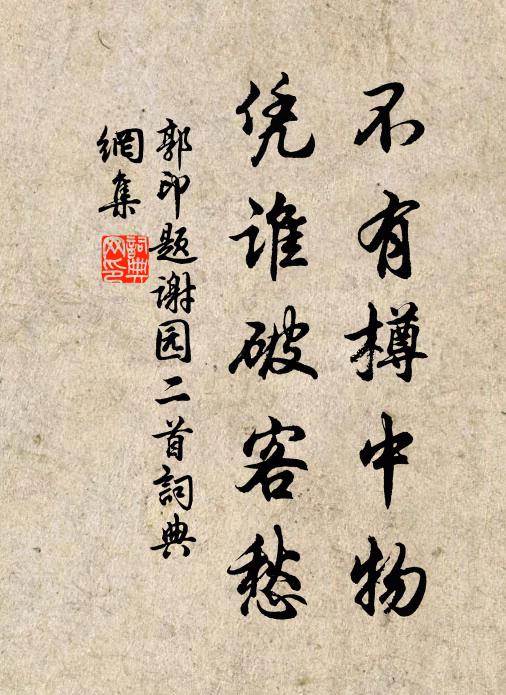 不有樽中物
凭谁破客愁
郭印题谢园二首詞典
網集
詞典
网印